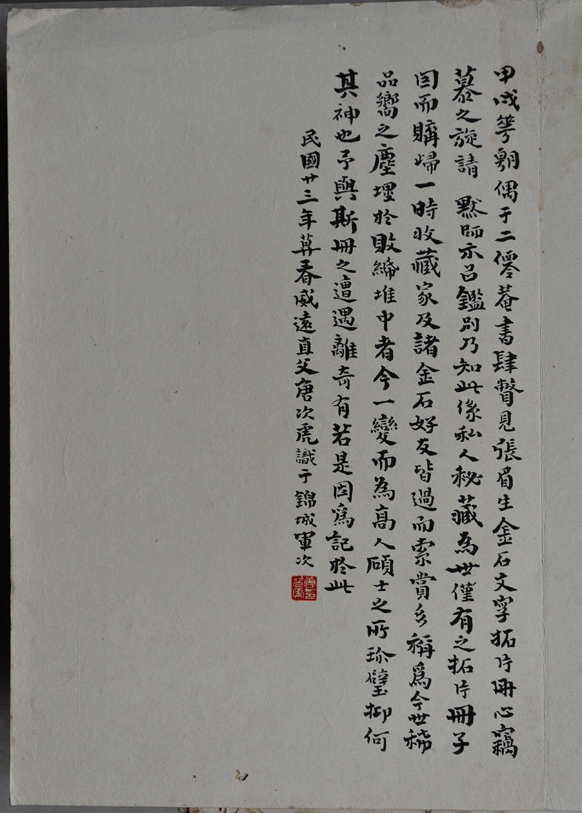 甲戌花朝偶于二儒菴書肆瞥見張眉生金石文字拓片冊心竊
慕之旋請 默師示以鑑別乃知此係私人秘藏為世僅有之拓片冊子
因而購歸一時收藏家及諸金石好友皆過而索賞多稱為今世稀
品嚮之塵埋於敗篇堆中者今一變而為高人碩士之所珍璧抑何
其神也予與斯冊之遭遇離奇有若是因為記於此
民國廿三年暮春威遠直父唐次虎識于錦城軍次